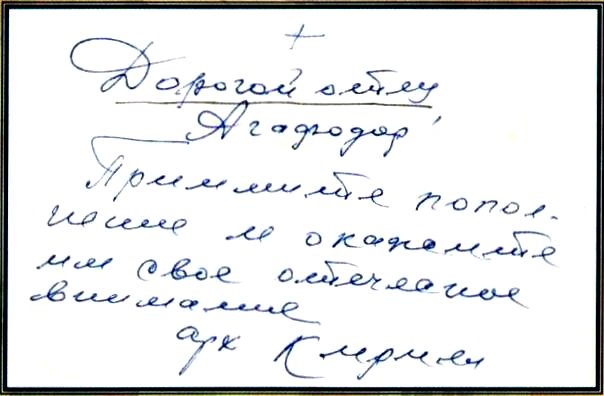 +
Дорогой отец
Агафодор!
Примите попол-
нение и окажите
им свое отеческое
внимание
арх Кирилл